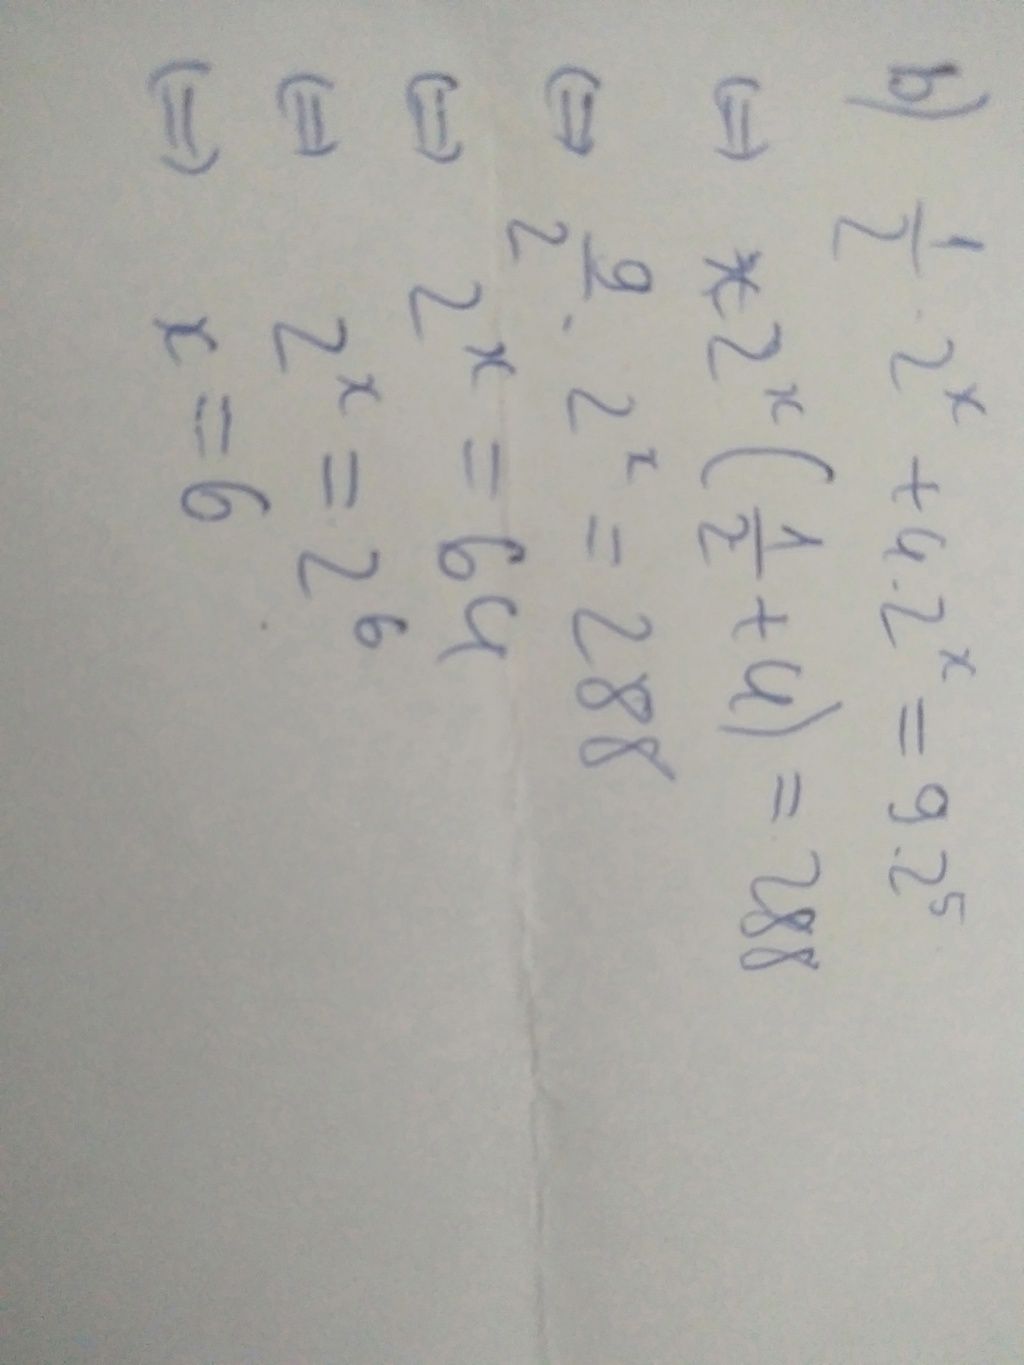 b) 1/2 . 2^x + 4.2^x = 9.2^5
(=) 2^x (1/2 + 4) = 288
(=) 9/2 . 2^x = 288
(=) 2^x = 64
(=) 2^x = 2^6
(=) x = 6